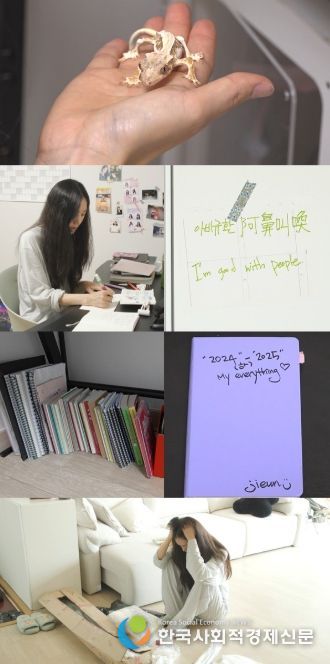 아비규환 阿鼻叫喚
I'm good with people.
"2024" "2025"
My everything♡
jieun
Korea Social Economy News
한국사회적경제신문